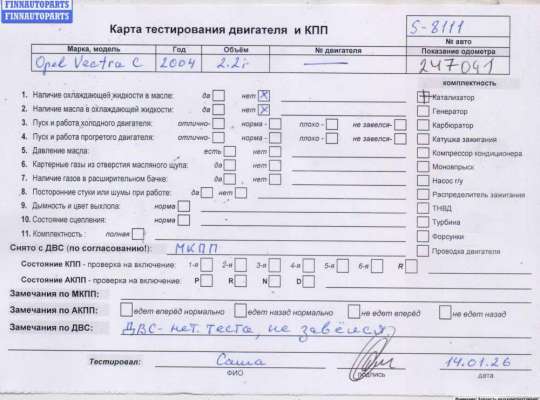 FINNAUTOPARTS
FINNAUTOPARTS
Карта тестирования двигателя и КПП
S-8111
№ авто
Марка, модель Год Объём № двигателя Показание одометра
Opel Vectra C 2004 2.2i — 247041
комплектность
1. Наличие охлаждающей жидкости в масле: да нет x
Катализатор
2. Наличие масла в охлаждающей жидкости: да нет x
Генератор
3. Пуск и работа холодного двигателя: отлично- норма - плохо - не завелся-
Карбюратор
4. Пуск и работа прогретого двигателя: отлично- норма - плохо - не завелся-
Катушка зажигания
5. Давление масла: есть нет
Компрессор кондиционера
6. Картерные газы из отверстия масляного щупа: да нет
Моновпрыск
7. Наличие газов в расширительном бачке: да нет
Насос г/у
8. Посторонние стуки или шумы при работе: да нет
Распределитель зажигания
9. Дымность и цвет выхлопа: норма
ТНВД
10. Состояние сцепления: норма
Турбина
11. Комплектность : полная
Форсунки
Снято с ДВС (по согласованию!): МКПП
Проводка двигателя
Состояние КПП - проверка на включение: 1-я 2-я 3-я 4-я 5-я 6-я R
Состояние АКПП - проверка на включение: P R N D
Замечания по МКПП:
Замечания по АКПП: едет вперёд нормально едет назад нормально не едет вперёд не едет назад
Замечания по ДВС: ДВС - нет теста, не завёлся.
Тестировал: Саша 14.01.26
ФИО подпись дата